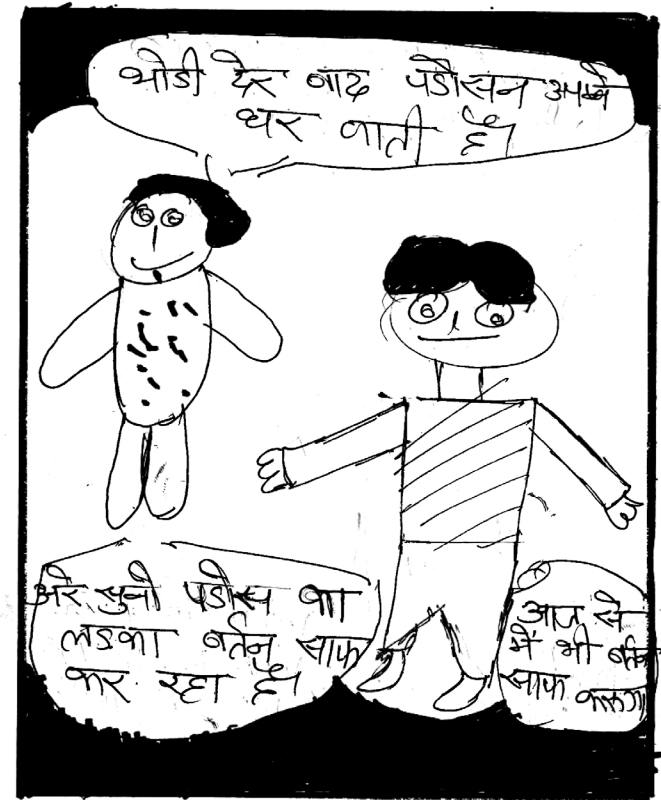 थोडी देर बाद पडौसन अपने
घर जाती है।
अरे, सुनो पडौस का
लडका बर्तन साफ
कर रहा है।
आज से
मैं भी बर्तन
साफ करूगा